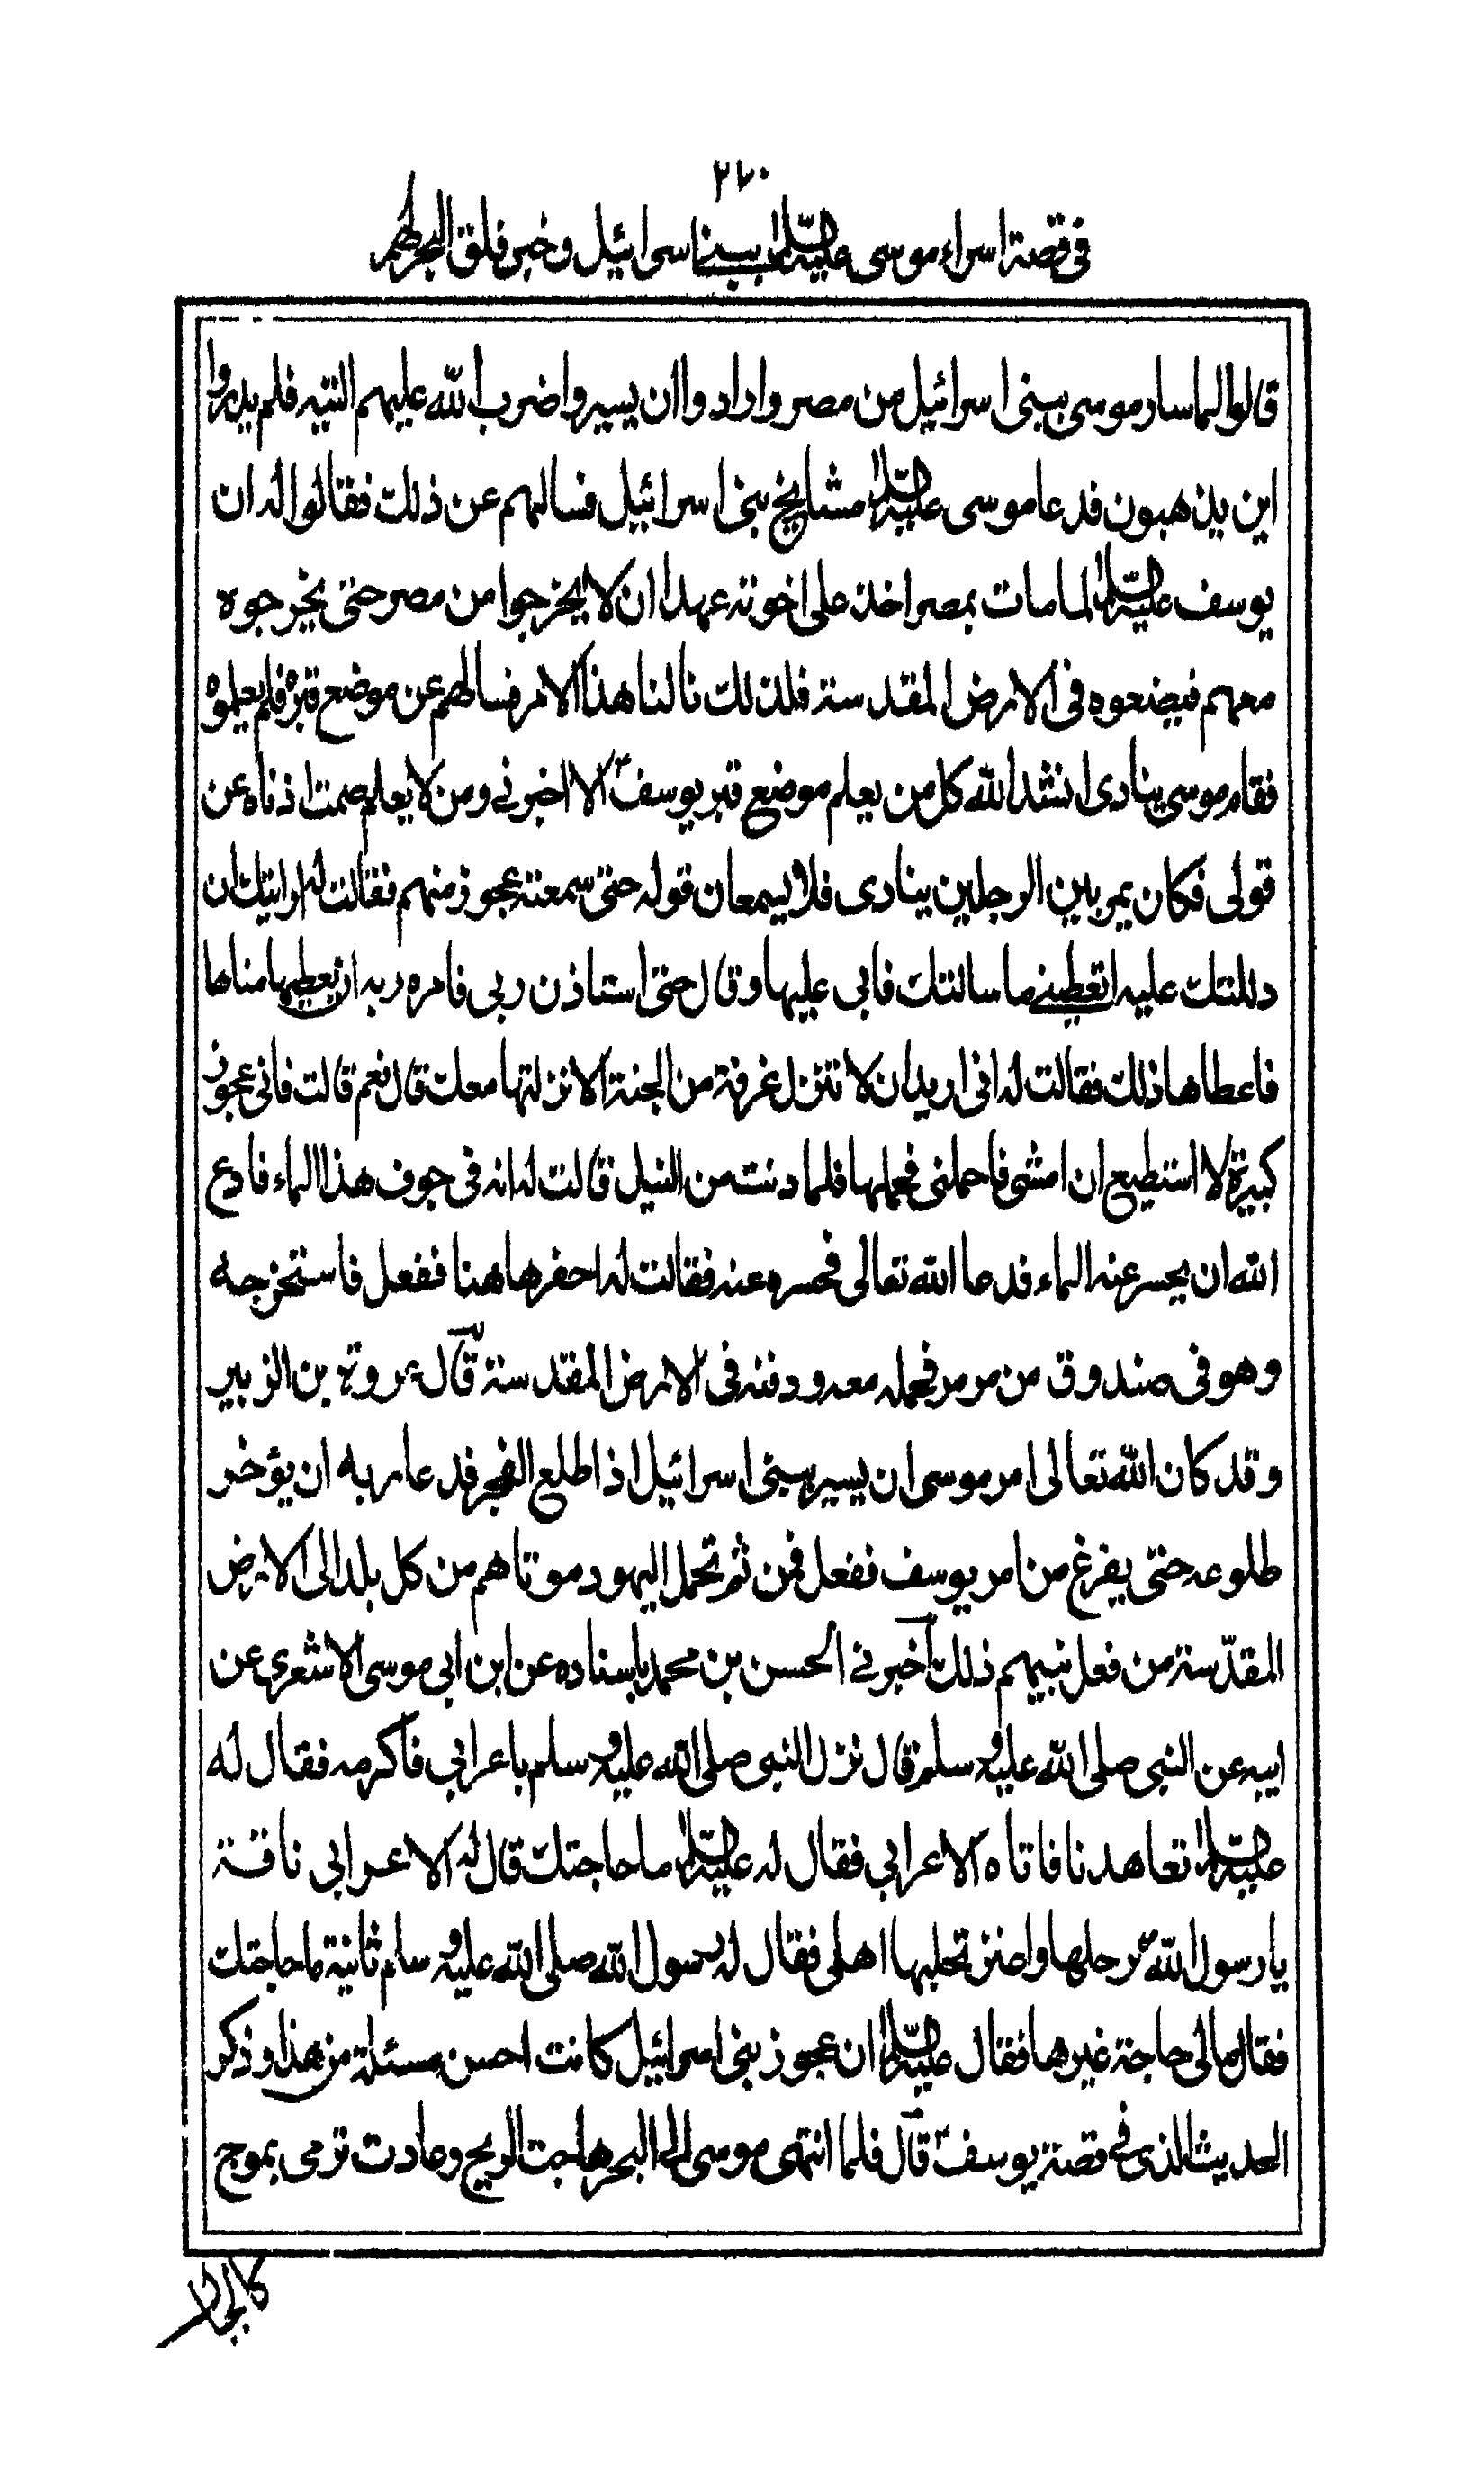 ٢٧٠
في قصة اسراء موسى عليه السلام ببني اسرائيل وخبر فلق البحر لهم
قالوا لما سار موسى ببني اسرائيل من مصر وارادوا ان يسيروا ضرب الله عليهم التيه فلم يدروا
اين يذهبون فدعا موسى عليه السلام مشايخ بني اسرائيل فسالهم عن ذلك فقالوا له ان
يوسف عليه السلام لما مات بمصر اخذ على اخوته عهدا ان لا يخرجوا من مصر حتى يخرجوه
معهم فيضعوه في الارض المقدسة فلذلك نالنا هذا الامر فسالهم عن موضع قبره فلم يعلموه
فقام موسى ينادى انشد الله كل من يعلم موضع قبر يوسفؑ الا اخبرني ومن لا يعلم صمت اذناه عن
قولى فكان يمر بين الرجلين ينادى فلا يسمعان قوله حتى سمعته عجوز منهم فقالت له ارايتك ان
دللتك عليه اتعطينى ما سالتك فابى عليها وقال حتى استاذن ربى فامره ربه ان يعطيها مناها
فاعطاها ذلك فقالت له انى اريد ان لا تنزل غرفة من الجنة الا نزلتها معك قال نعم قالت فانى عجوز
كبيرة لا استطيع ان امشى فاحملنى فحملها فلما دنت من النيل قالت له انه فى جوف هذا الماء فادع
الله ان يحسر عنه الماء فدعا الله تعالى فحسره عنه فقالت له احفر هاهنا ففعل فاستخرجه
وهو فى صندوق من مرمر فحمله معه ودفنه فى الارض المقدسة قال عروة بن الزبير
وقد كان الله تعالى امر موسى ان يسير ببنى اسرائيل اذا طلع الفجر فدعا ربه ان يؤخر
طلوعه حتى يفرغ من امر يوسف ففعل فمن ثم تحمل اليهود موتاهم من كل بلد الى الارض
المقدّسة من فعل نبيهم ذلك اخبرني الحسن بن محمد باسناده عن ابن ابى موسى الاشعرى عن
ابيه عن النبى صلى الله عليه وسلم قال نزل النبى صلى الله عليه وسلم باعرابى فاكرمه فقال له
عليه السلام تعاهدنا فاتاه الاعرابى فقال له عليه السلام ما حاجتك قال له الاعرابى ناقة
يا رسول الله برحلها واعنز تحلبها اهلى فقال له رسول الله صلى الله عليه وسلم ثانية ما حاجتك
فقال مالى حاجة غيرها فقال عليه السلام ان عجوز بنى اسرائيل كانت احسن مسئلة من هذا وذكر
الحديث الذى فى قصة يوسفؑ قال فلما انتهى موسى الى البحر هاجت الريح وعادت ترمى بموج
كالجبال